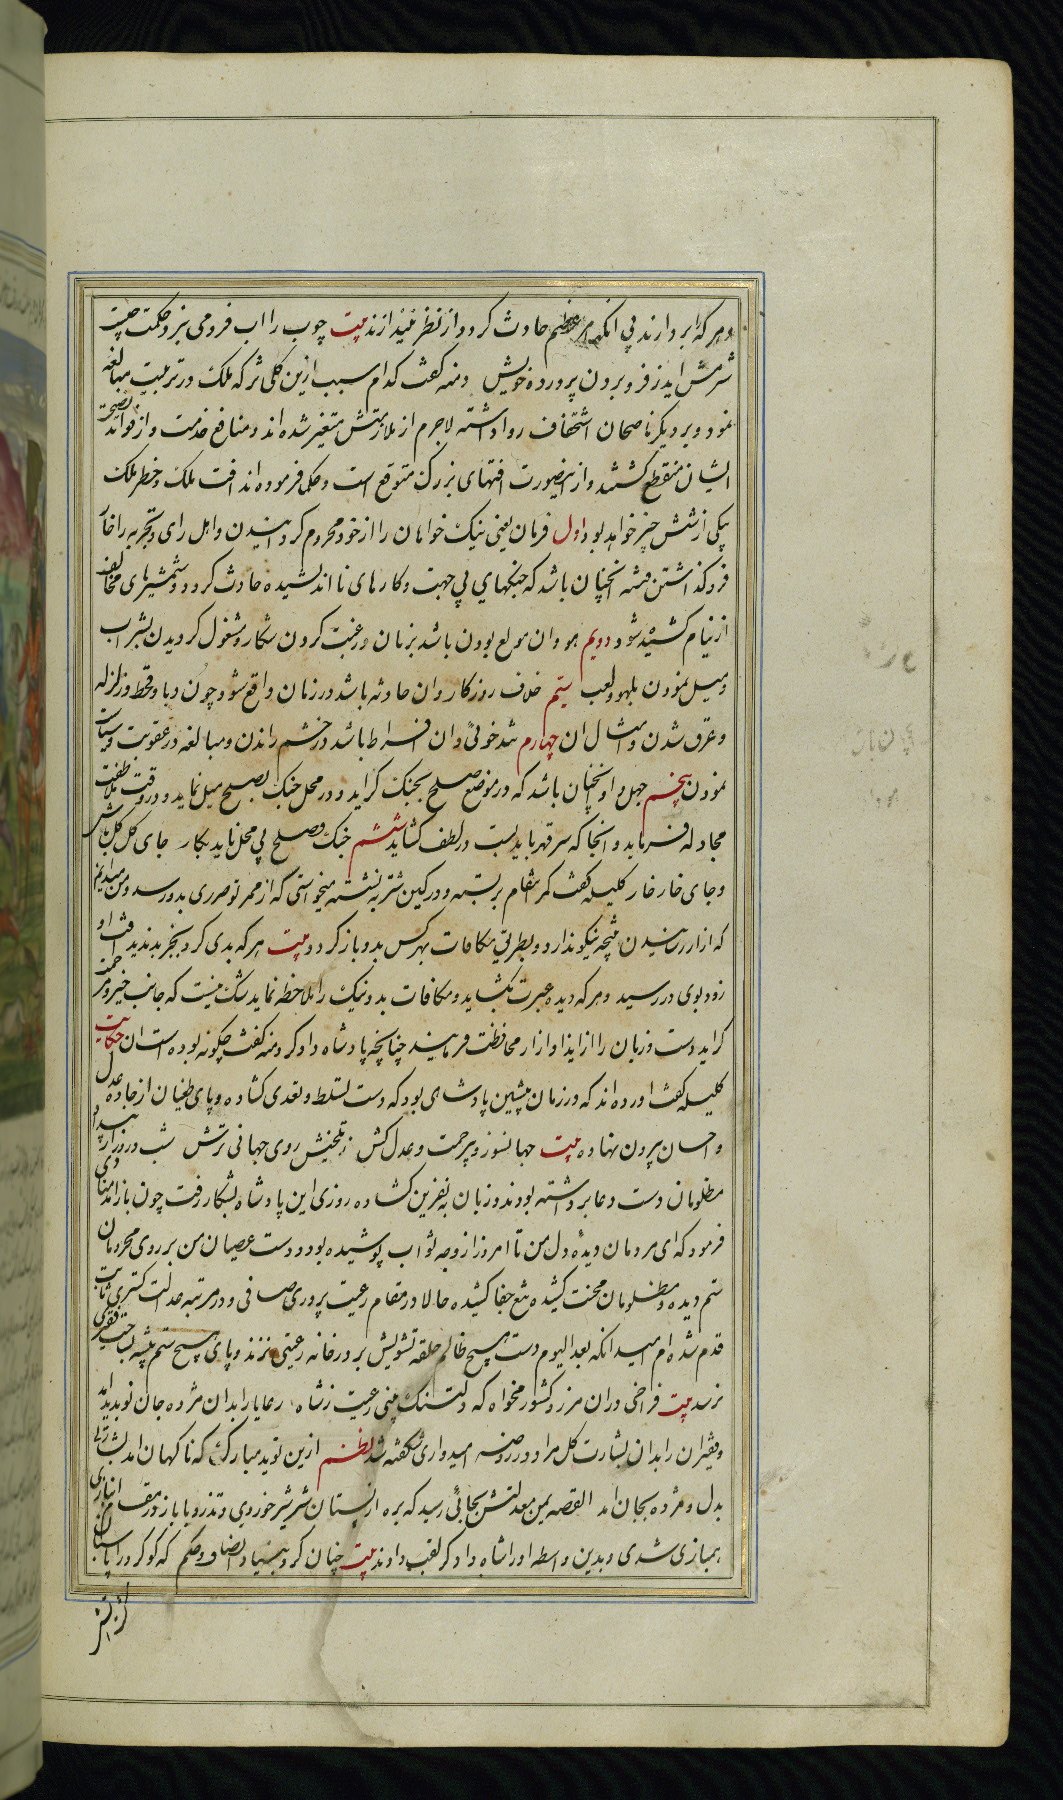 و هر که را بردارند بی آنکه امر عظیم حادث کردد از نظر نیندازند بیت چوب را اب فرو می نبرد حکمت چیست
شرمش اید ز فرو بردن پرورده خویش دمنه کفت کدام سبب ازین کلی تر که ملک در تربیت مبالغه
نمود و بر دیکر ناصحان استخفاف روا داشته لاجرم از ملازمتش متغیر شده اند و منافع خدمت و از فواید نصیحت
ایشان منقطع کشتند و از اینصورت افتهای بزرک متوقع است و حکما فرموده اند افت ملک و خطر ملک
یکی از شش چیز خواهد بود اول فرمان یعنی نیک خواهان را از خود محروم کردانیدن و اهل رای و تجربه را خار
فرو کذاشتن فتنه انچنان باشد که جنکهای بی جهت و کارهای نا اندیشیده حادث کردد و شمشیرهای مخالف
از نیام کشیده شود دویم هوا و ان مولع بودن باشد بزنان و رغبت کردن شکار و مشغول کردیدن بشراب
و میل نمودن بلهو و لعب سیم خلاف روزکار و ان حادثه باشد در زمان واقع شود چون وبا و قحط و زلزله
و غرق شدن و امثال ان چهارم تند خوئی و ان افراط باشد در خشم راندن و مبالغه در عقوبت و سیاست
نمودن پنجم جهل و او انچنان باشد که در موضع صلح بجنک کراید و در محل جنک بصلح میل نماید و در وقت ملاطفت
مجادله فرماید و انجا که سر قهر باید بست در لطف کشاید ششم جنک و صلح بی محل ناید بکار جای کل کل باش
و جای خار خار کلیله کفت کمر انتقام بربسته و در کمین شتربه نشسته میخواستی که از ممر تو ضرری بدو رسد و من میدانم
که ازار رسانیدن نتیجه نیکو ندارد و بطریق مکافات بهر کس بدو باز کردد بیت هر که بدی کرد بجز بد ندید افت او
زود بوی در رسید و هر که دیده عبرت بکشاید و مکافات بد و نیک را ملاحظه نماید شک نیست که جانب خیر و مرحمت
کراید دست و زبان را از ایذا و ازار محافظت فرمایند چنانچه پادشاه دادکر دمنه کفت چکونه بوده است ان حکایت
کلیله کفت اورده اند که در زمان پیشین پادشاهی بود که دست تسلط و تعدی کشاده و پای طغیان از جاده عدل
و احسان بیرون نهاده بیت جهانسوز و بیرحمت و عدل کش ز تلخیش روی جهانی ترش شب و روز از بیداد وی
مظلومان دست دعا برداشته بودند و زبان به نفرین کشاده روزی این پادشاه بشکار رفت چون باز امد منادی
فرمود که ای مردمان دیده دل من تا امروز از وجه ثواب پوشیده بود و دست عصیان من بر روی محرومان
ستم دیده و مظلومان محنت کشیده تیغ جفا کشیده حالا در مقام رعیت پروری صافی و در مرتبه عدالت کستری ثابت
قدم شده ام امید انکه بعد الیوم دست هیچ ظالم حلقه تشویش بر در خانه رعیتی نزند و پای هیچ ستم پیشه بساحت فقیری
نرسد بیت فراخی دران مرز و کشور مخواه که دلتنک بینی رعیت ز شاه رعایا را بدان مژده جان نو پدید امد
و فقیران را بدان بشارت کل مراد در روضه امیدواری شکفته شد نظم ازین نوید مبارک که ناکهان امد بشارتی
بدل و مژده بجان امد القصه یمن معدلتش بجائی رسید که بره از پستان شیر شیر خوردی و تذرو با باز در مقام انبازی
بهبازی شدی و بدین واسطه او را شاه دادکر لقب دادند بیت چنان کرد بنیاد انصاف و حکم که کو کرد را پاسبان